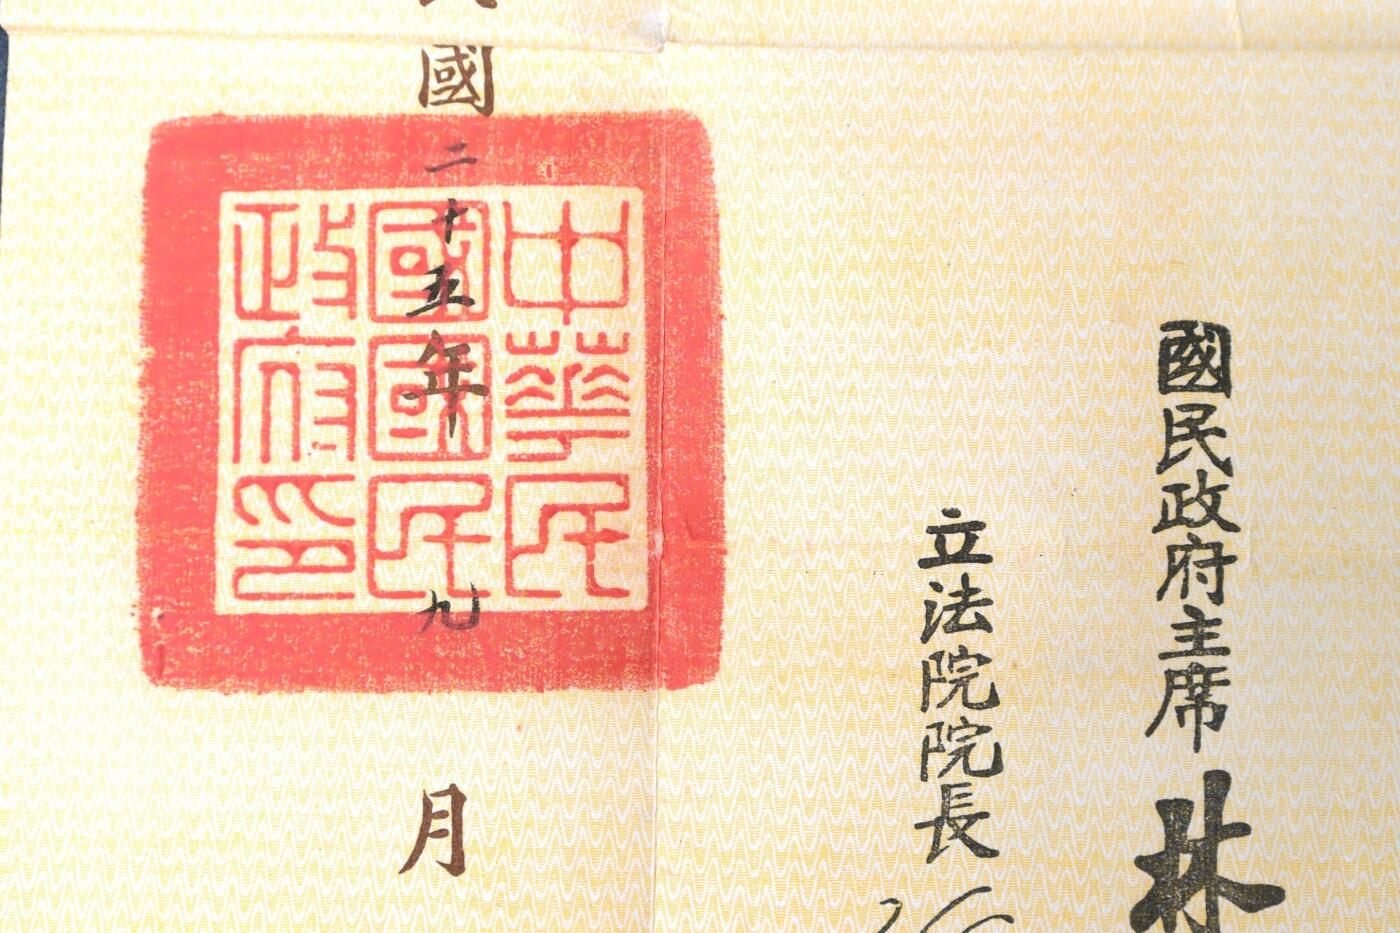 國民政府主席 林
立法院院長
中華民
國國民
政府印
國二十五年九月